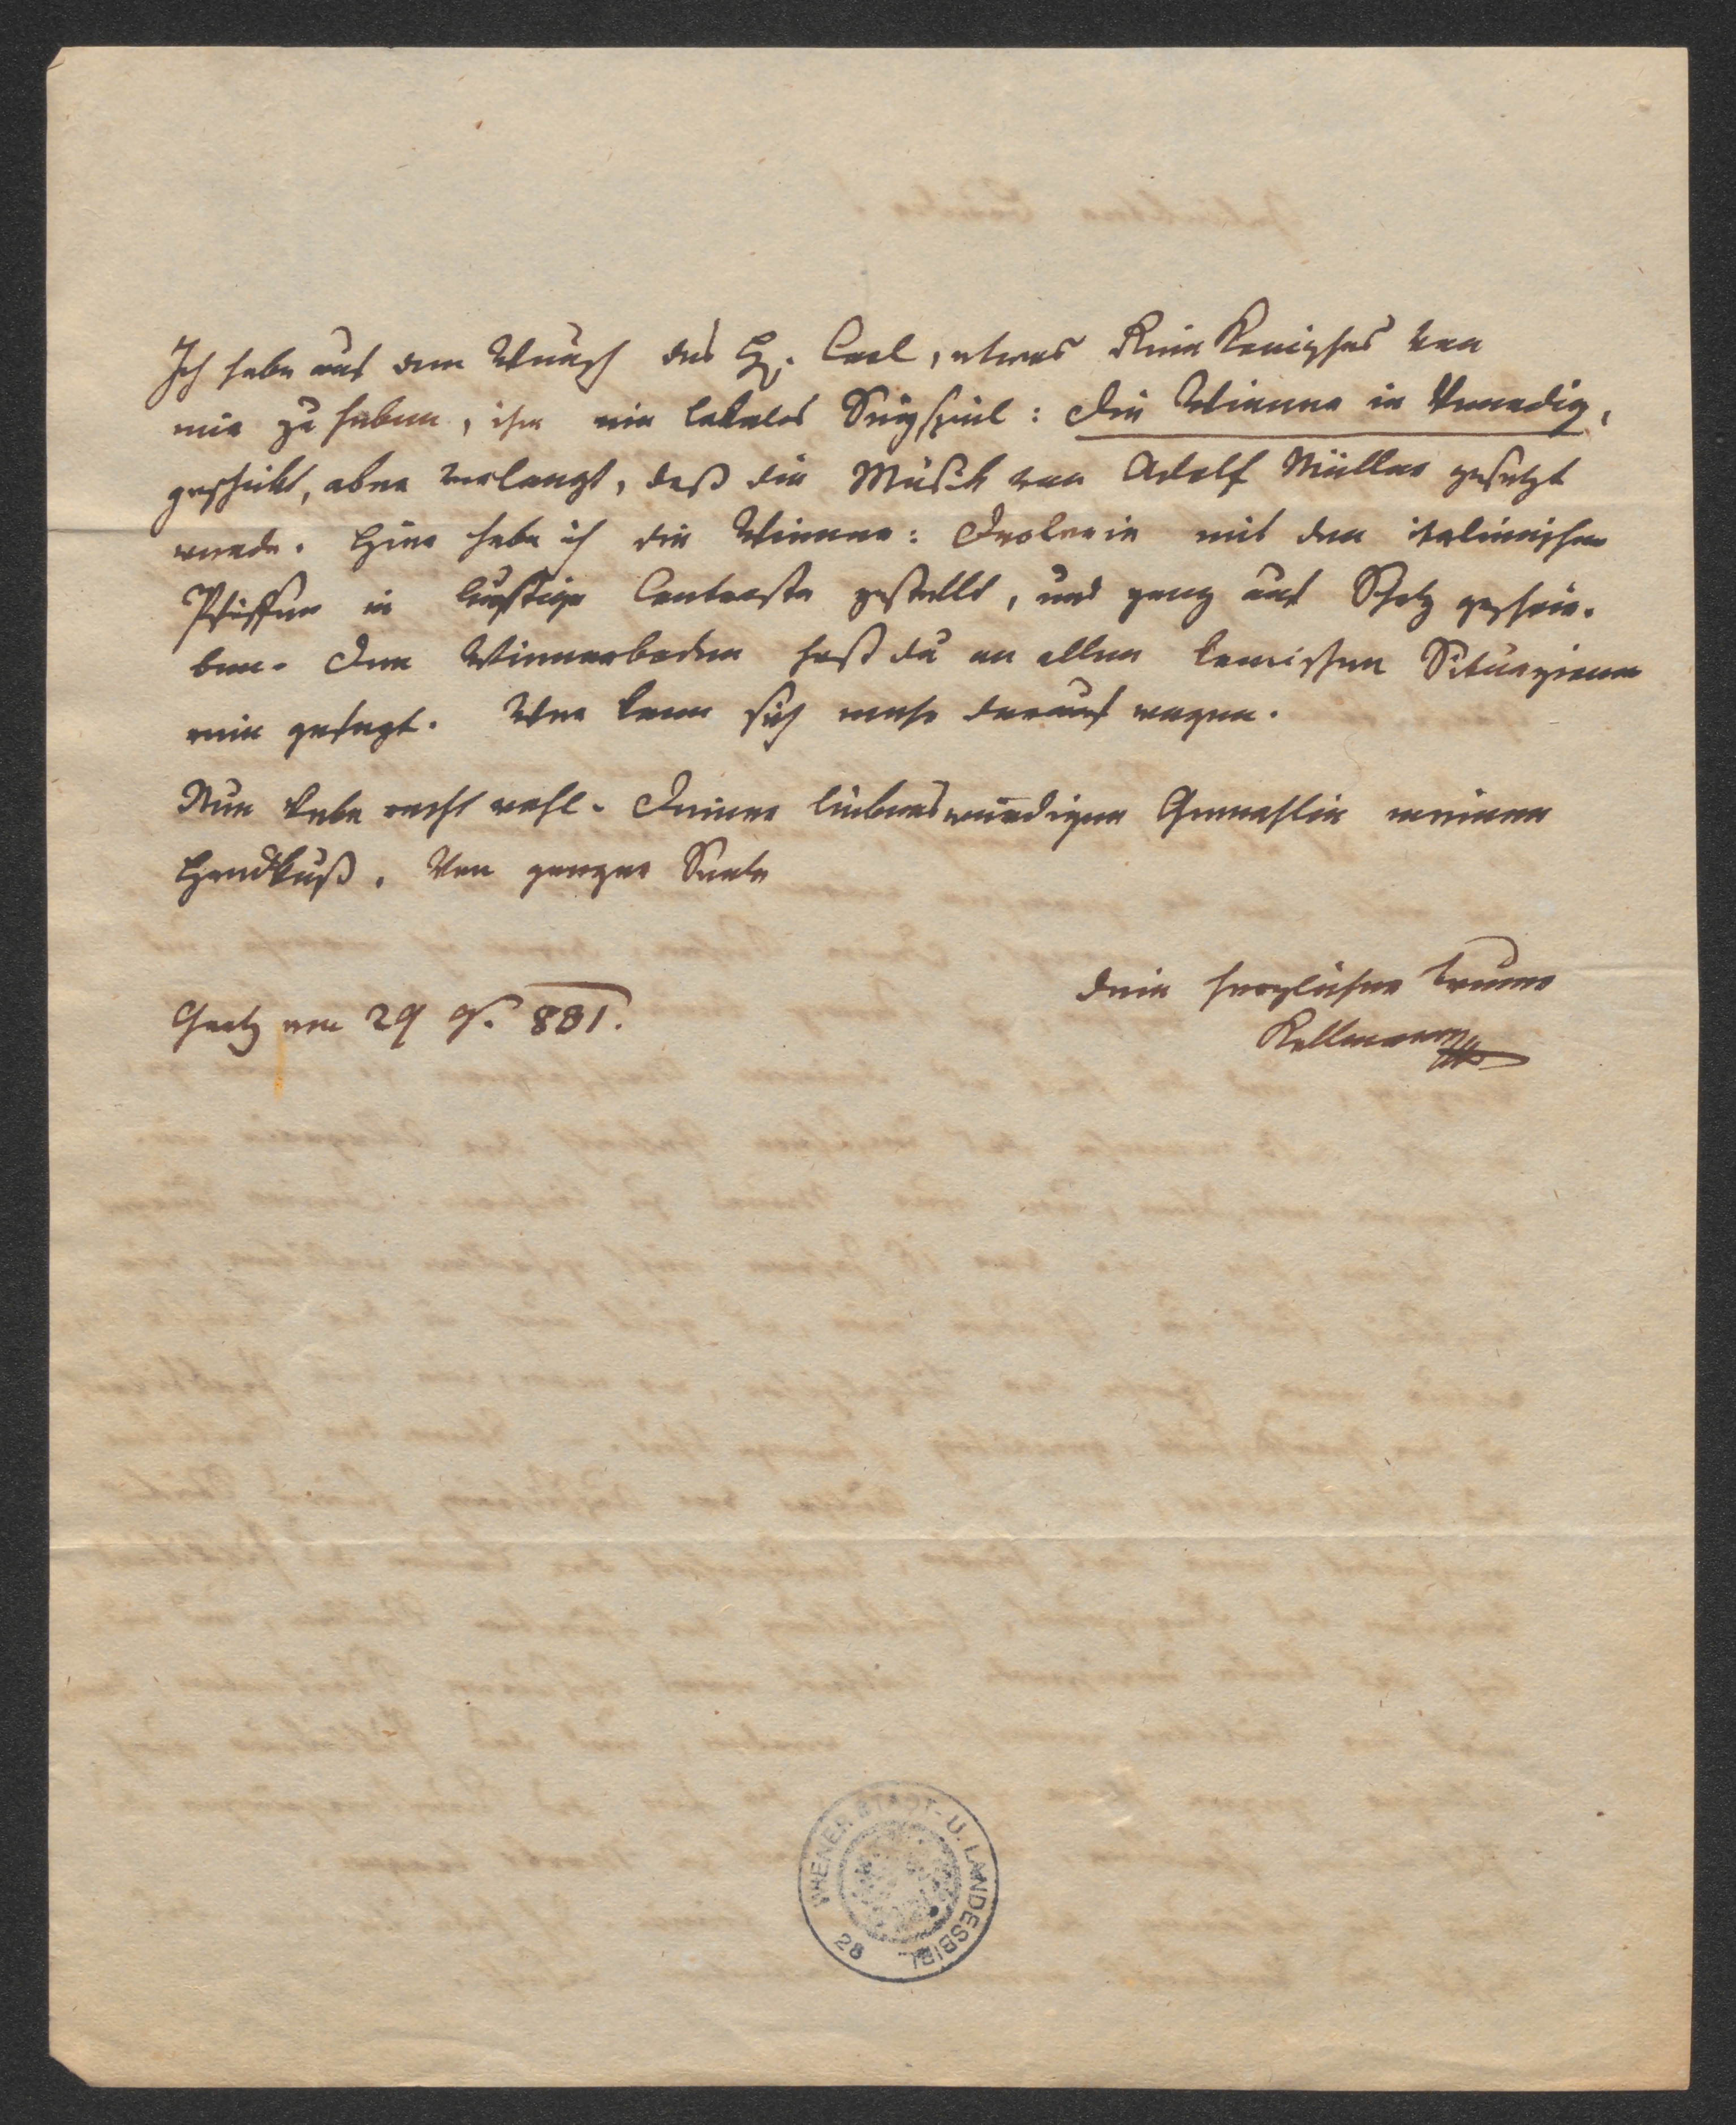 Ich habe auf den Wunsch des H. Carl, etwas Rein Komisches von
mir zu haben, ihm ein lokales Singspiel: Die Wiener in Venedig,
geschickt, aber verlangt, daß die Musik von Adolf Müller gesetzt
werde. Hier habe ich die Wiener: mit den italienischen
Pfiffen in lustige Contraste gestellt, und ganz auf Scholz geschrie-
ben. Den Wienerboden hast du an allen komischen Situazionen
rein gefegt. Wer kann sich mehr darauf wagen.
Nun lebe recht wohl. Deiner liebenswürdigen Gemahlin meinen
Handkuß. Von ganzer Seele
dein herzlicher treuer
Gratz am 29 831.
Kollmann
WIENER STADT- U. LANDESBIBL.
28